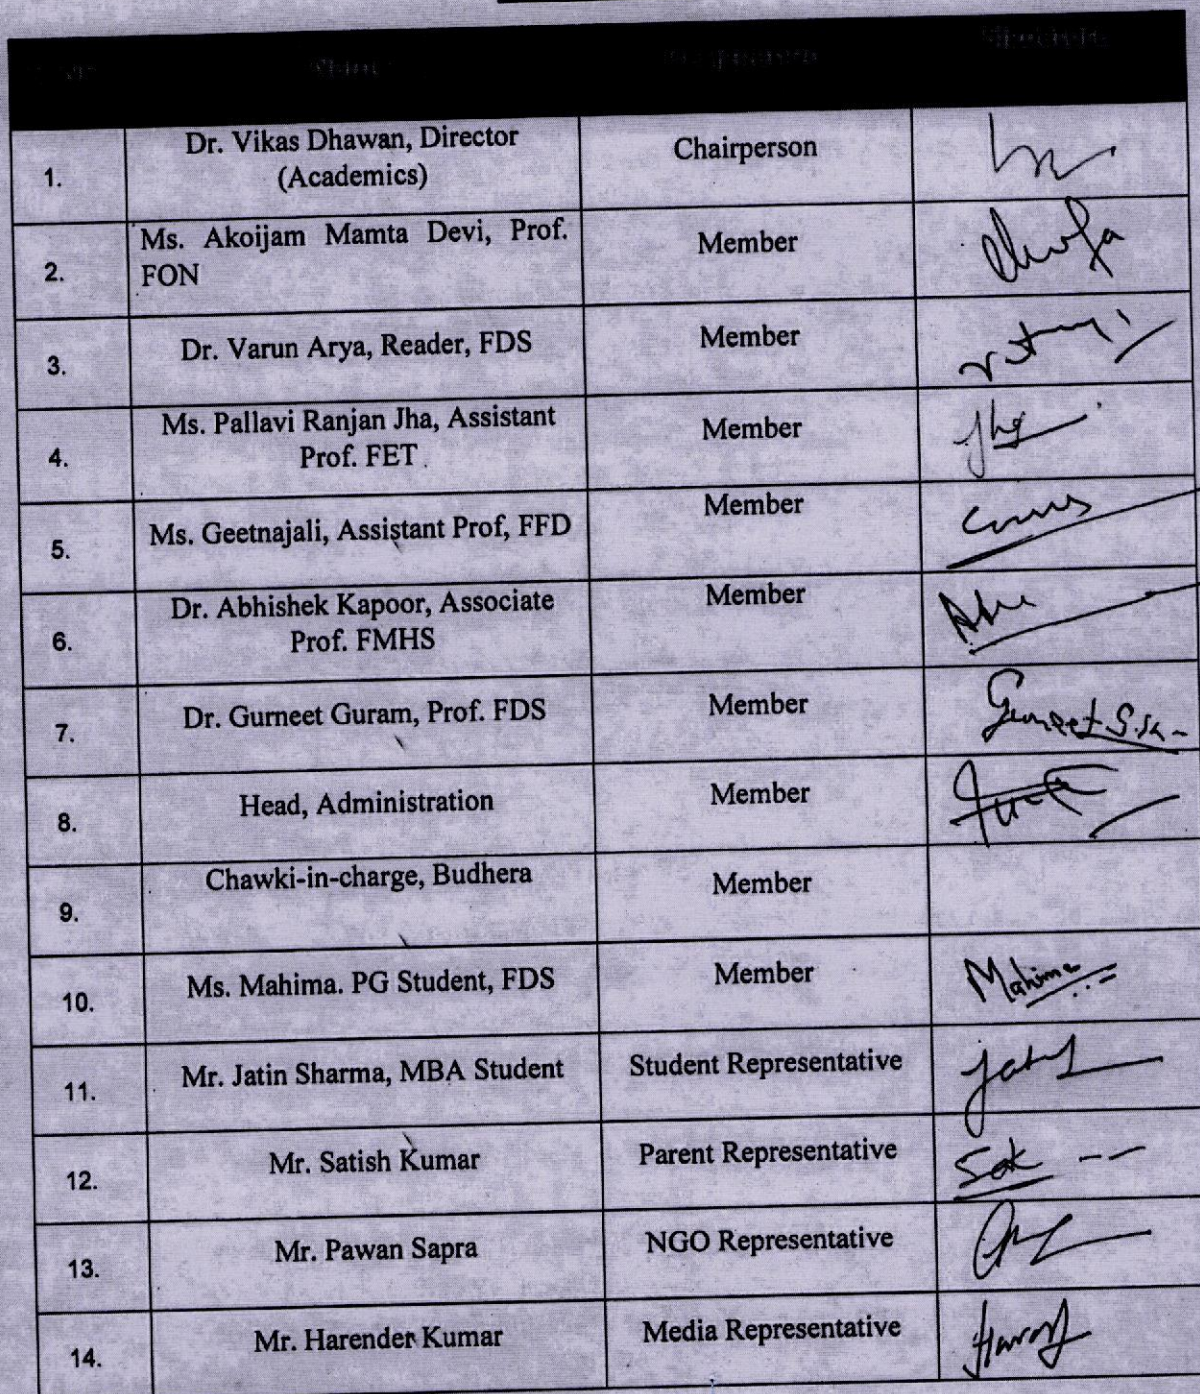 Name
Signature
1.
Dr. Vikas Dhawan, Director
(Academics)
Chairperson
2.
Ms. Akoijam Mamta Devi, Prof.
FON
Member
3.
Dr. Varun Arya, Reader, FDS
Member
4.
Ms. Pallavi Ranjan Jha, Assistant
Prof. FET
Member
Jha
5.
Ms. Geetnajali, Assistant Prof, FFD
Member
6.
Dr. Abhishek Kapoor, Associate
Prof. FMHS
Member
7.
Dr. Gurneet Guram, Prof. FDS
Member
Gurneet
8.
Head, Administration
Member
9.
Chawki-in-charge, Budhera
Member
10.
Ms. Mahima. PG Student, FDS
Member
Mahima
11.
Mr. Jatin Sharma, MBA Student
Student Representative
12.
Mr. Satish Kumar
Parent Representative
13.
Mr. Pawan Sapra
NGO Representative
14.
Mr. Harender Kumar
Media Representative